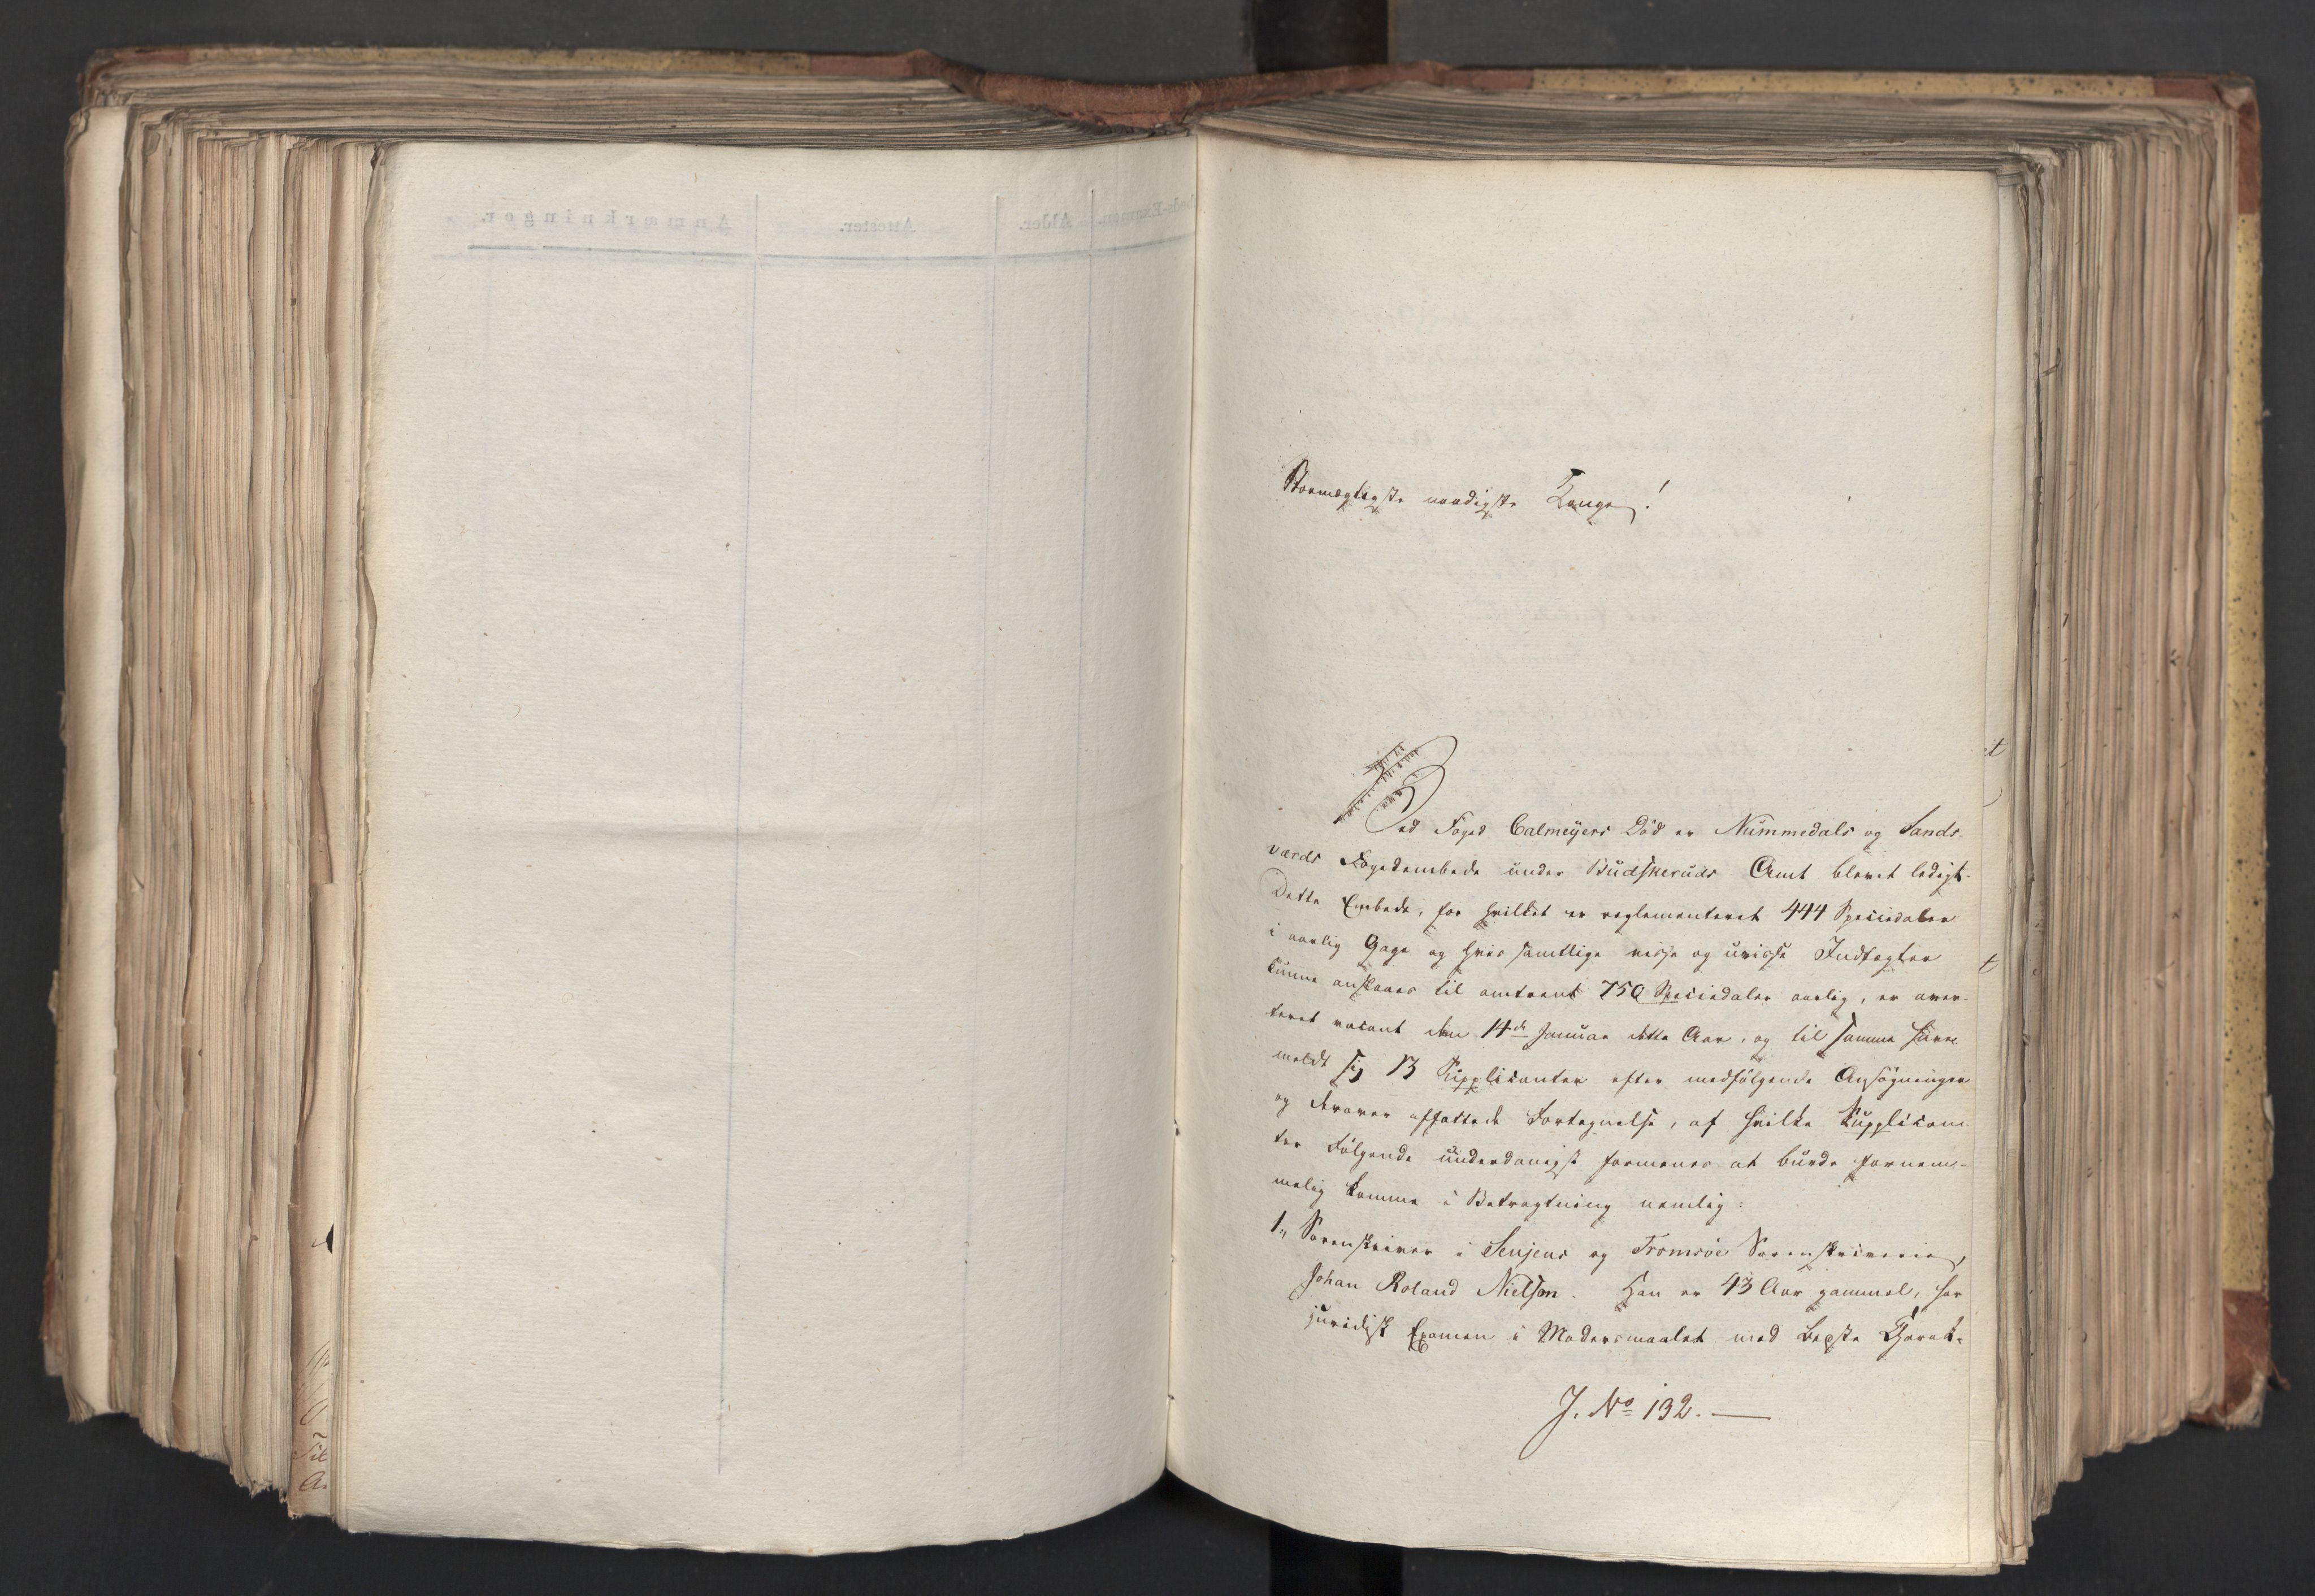 Stormægtigste naadigste Konge!
Ved Foged Calmeyers Död er Nummedals og Sands-
værds Fogedembede under Budskeruds Amt blevet ledigt.
Dette Embede, for hvilket er reglementeret 444 Speciedaler
i aarlig Gage og hvis samtlige visse og uvisse Indtægter
kunne anslaaes til omtrent 750 Speciedaler aarlig, er aver-
teret vacant den 14de Januar dette Aar, og til samme have
meldt sig 13 Supplicanter efter medfölgende Ansögninger
og derover affattede Fortegnelse, af hvilke Supplican-
ter Fölgende underdanigst formenes at burde fornem-
melig komme i Betragtning nemlig:
1., Sorenskriver i Senjens og Tromsöe Sorenskriverie,
Johan Roland Nielsen. Han er 43 Aar gammel, har
juridisk Examen i Modersmaalet med bepste Charak-
J. No 132. —
Anmærkninger.
Attester.
Alder.
t
t